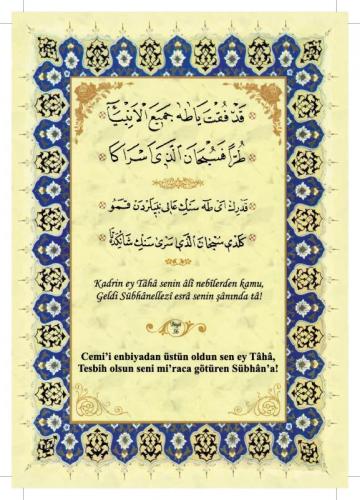 قَدْ فُقْتَ يَا طٰهٰ جَمِيعَ الْاَنْبِيَٓا
طُرًّا فَسُبْحَانَ الَّذٖٓى اَسْرَاكَا
قدرك اى طه سنك عالى نبيلردن قمو
كلدى سبحان الذى اسرى سنك شانكده تا
Kadrin ey Tâhâ senin âlî nebîlerden kamu,
Geldi Sübhânellezî esrâ senin şânında tâ!
Beyit
Cemi'i enbiyadan üstün oldun sen ey Tâhâ,
Tesbih olsun seni mi'raca götüren Sübhân'a!